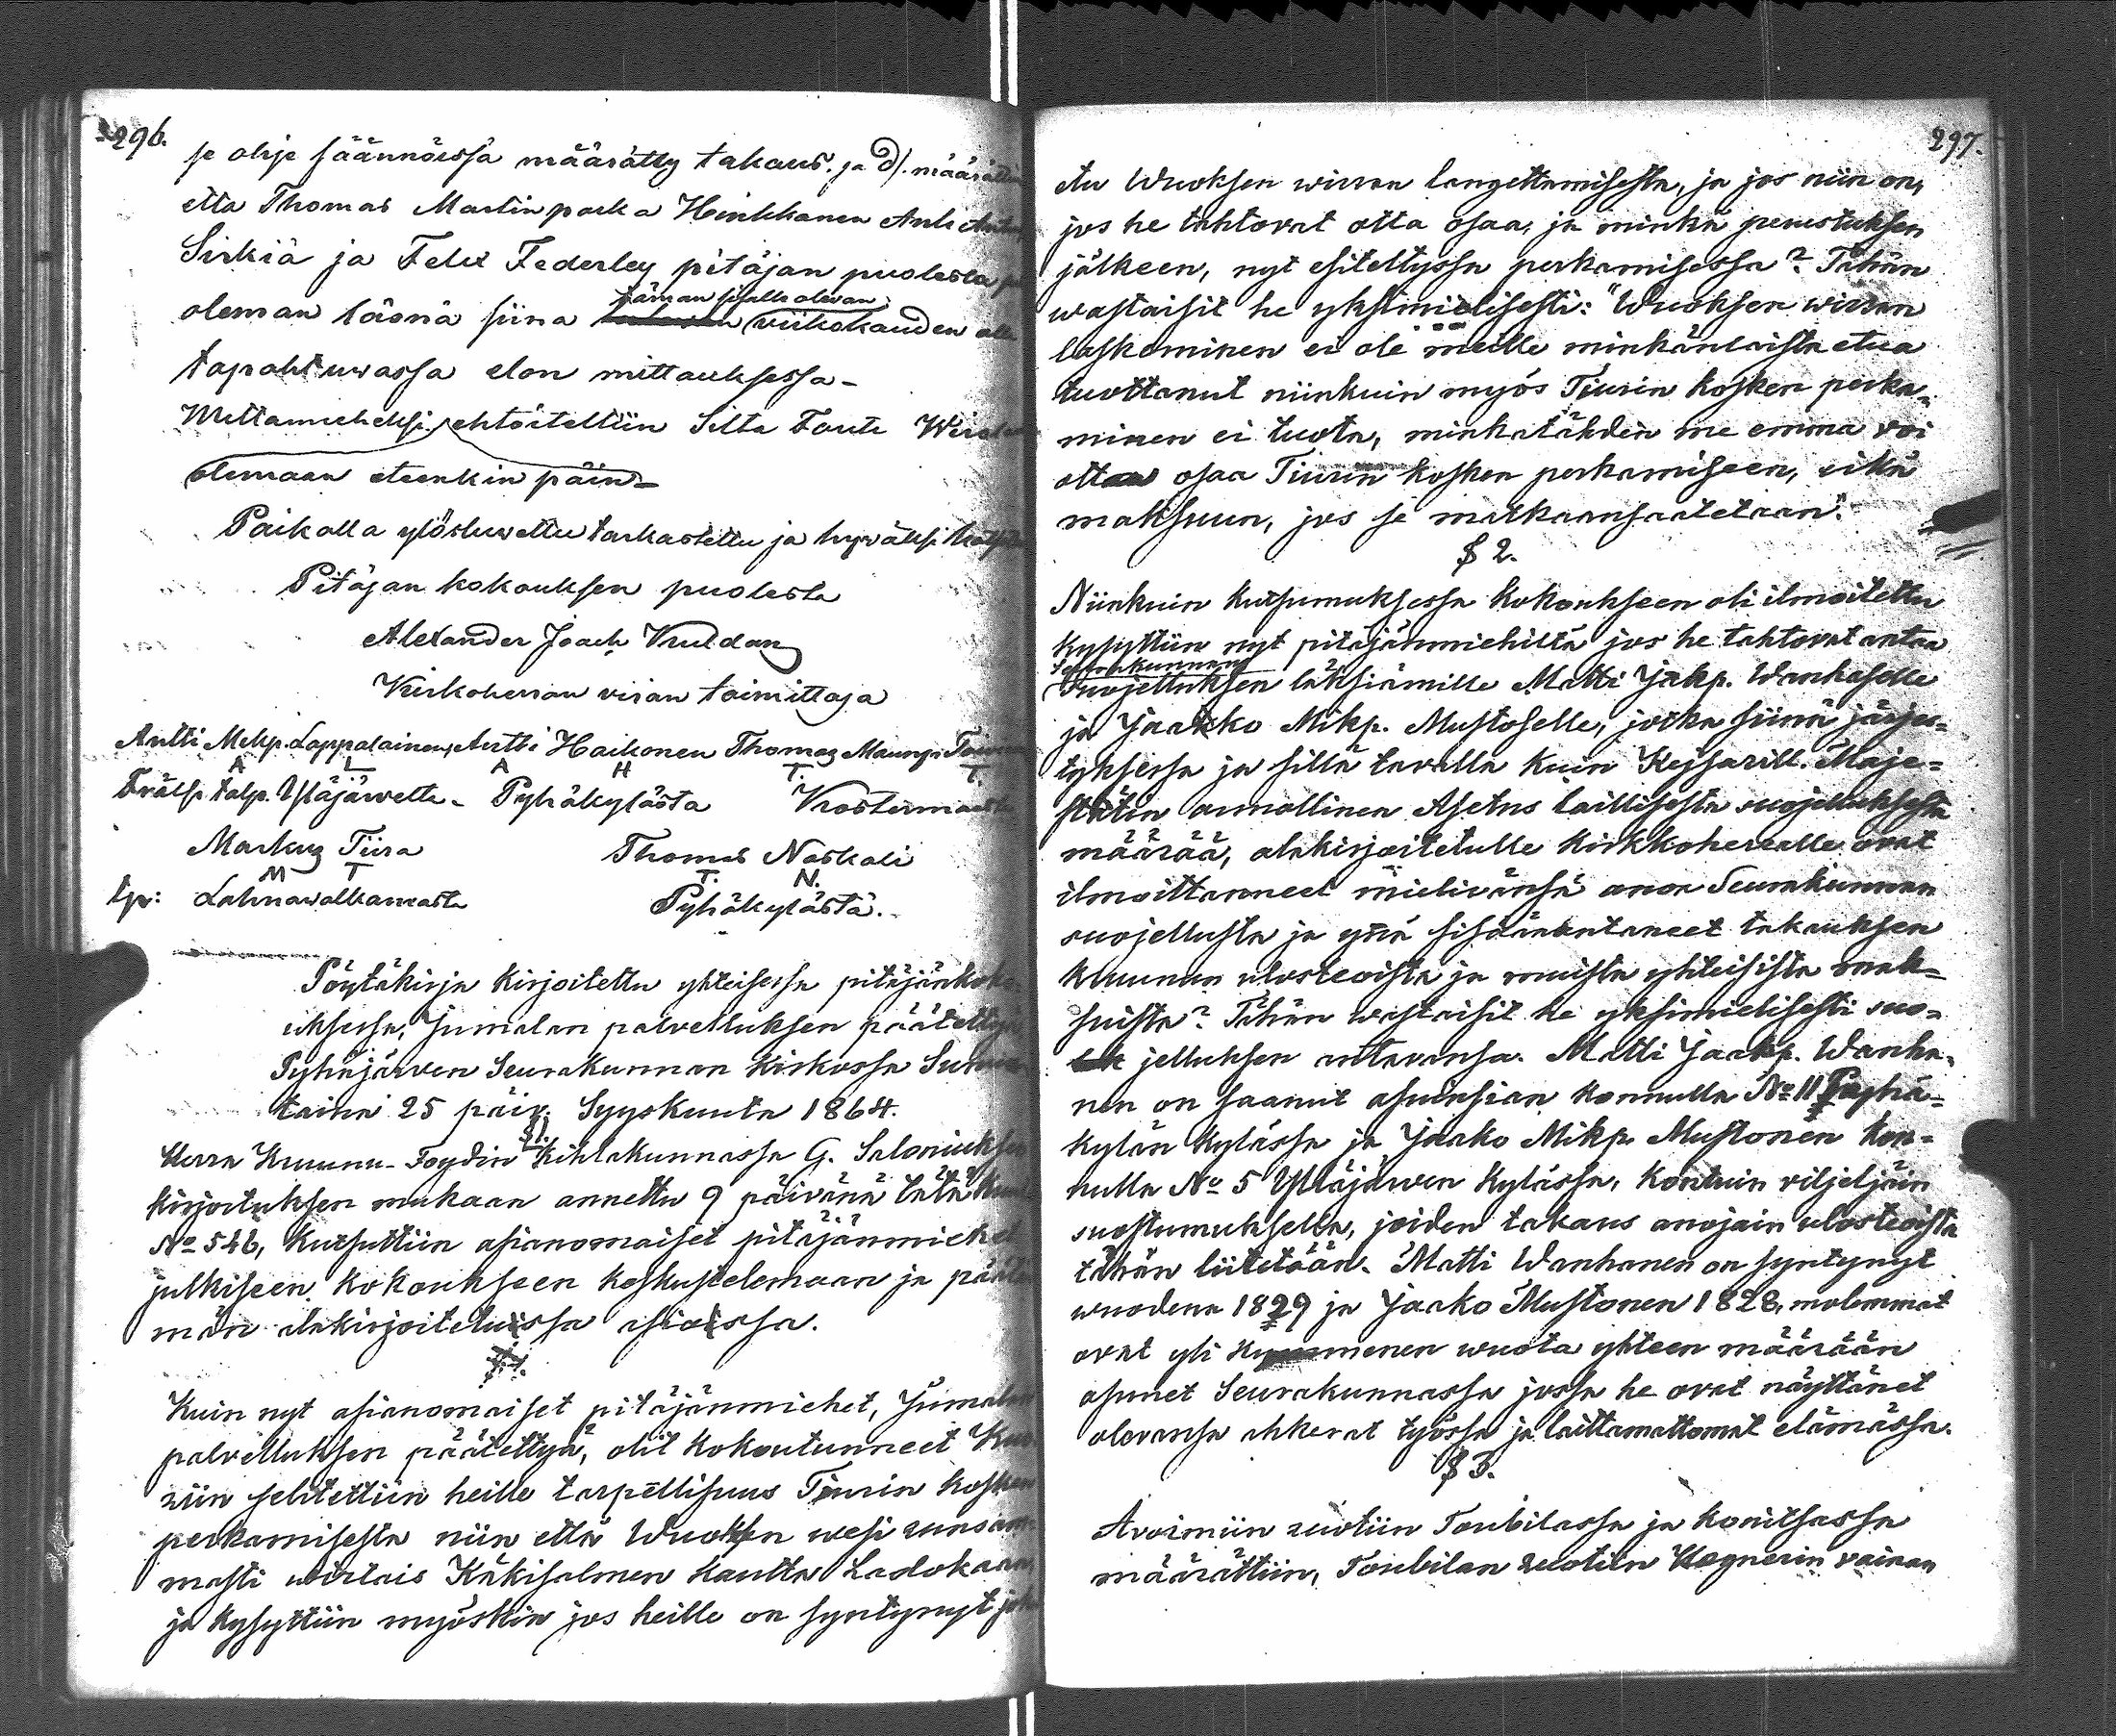 296.
se ohje säännöissä määrätty takaus. ja d). määrättiin
etta Thomas Martinpoika Hinkkanen Antti
Sirkiä ja Felix Federley pitäjan puolesta
oleman läsnä siina viikokauden
tämän sisälle olevan
tapahtuwassa elon mittauksessa-
Mittamieheksi ehtoiteltiin Silta Fouti
olemaan eteenkin päin-
Paikalla ylösluwettu tarkastettu ja hyväksi
Pitäjan kokouksen puolesta
Alexander Joach
Kirkoherran viran toimittaja
Antti Mikp. Lappalainen, Antti Haikonen Thomas Maunp.
A L A H T. T.
Frälse talp. Yläjärwelte- Pyhäkylästa
Markus Tiira Thomas Naskali
M T T. N.
tpr: Lahnawalkamasta Pyhäkylästä.
Pöytäkirja kirjoitettu yhteisessa pitäjänkoko
uksessa, Jumalan palvelluksen päätettyä
Pyhäjärven Seurakunnan kirkossa Sunnun
taina 25 päiv. Syyskuuta 1864.
§1.
Herra Kruunu-Foydin Kihlakunnassa G. Saloniuksen
kirjoituksen mukaan annettu 9 päivänä tätä kuuta
No 546, kutsuttiin asianomaiset pitäjänmiehet
julkiseen kokoukseen keskustelemaan ja päättä
män alakirjoiteluissa asioissa.
Kuin nyt asianomaiset pitäjänmiehet, Jumalan
palvelluksen päätettyä, olit kokoutunneet
niin selitettiin heille tarpellisuus Tiurin kosken
perkamisesta niin että Wuoksen wesi runsam
masti wirtais Käkisalmen kautta Ladokaan
ja kysyttiin myöskin jos heille on syntynyt
297.
etu Wuoksen wirran langettamisesta, ja jos niin on,
jos he tahtovat otta osaa, ja minkä perustuksen
jälkeen, nyt esiteltyssa perkamisessa? Tähän
wastaisit he yksimielisesti: "Wuoksen wirran
laskeminen ei ole meille minkänlaista etua
tuottanut niinkuin myös Tiurin kosken perka-
minen ei tuota, minkatähden me emma voi
ottaa osaa Tiurin kosken perkamiseen, eikä
maksuun, jos se matkaansaatetaan".
§ 2.
Niinkuin kutsumuksessa kokoukseen oli ilmoitettu
kysyttiin nyt pitäjänmiehiltä jos he tahtovat antaa
Seurakunnan
suojelluksen läksiämille Matti Jakp. Wanhaselle
ja Jaakko Mikp. Mustoselle, jotka siinä järjes-
tyksessa ja sillä tavalla kuin Keisarill. Maje-
stätin armollinen Asetus laillisesta suojelluksesta
määrää, alakirjoitetulle kirkkoherralle ovat
ilmoittanneet mielivänsä anoa Seurakunnan
suojellusta ja ynä sisäänantaneet takauksen
kruunun ulosteoista ja muista yhteisista mak-
suista? Tähän wastaisit he yksimielisesti suo-
jelluksen antavansa. Matti Jaakp. Wanha-
nen on saanut asuinsian konnulla No 11 Pyhä-
kylän kylässa ja Jaako Mikp. Mustonen kon-
nulla No 5 Yläjärwen kylässa, kontuin viljeljäin
suostumuksella, joiden takaus anojain ulosteoista
tähän liitetään. Matti Wanhanen on syntynyt
wuodena 1829 ja Jaako Mustonen 1828, molemmat
ovat yli kymmenen wuota yhteen määrään
asunet Seurakunnassa jossa he ovat näyttänet
olevansa ahkerat työssa ja laittamattomat elämässa.
§ 3.
Avoimiin ruotiin Toubilassa ja konitsassa
määrättiin, Toubilan ruotiin Wagnerin vainan